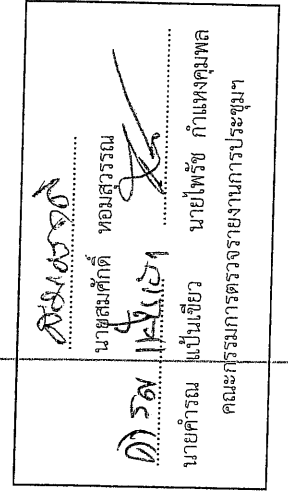 นายสมศักดิ์ หอมสุวรรณ
นายคำรณ แป้นเขียว นายไพรัช กำแหงคุมพล
คณะกรรมการตรวจรายงานการประชุมฯ